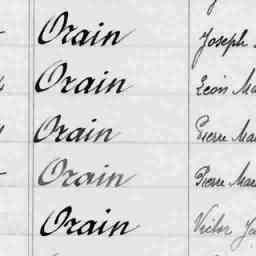 Orain Joseph
Orain Léon Ma
Orain Pierre Mar
Orain Pierre Mar
Orain Victor Je